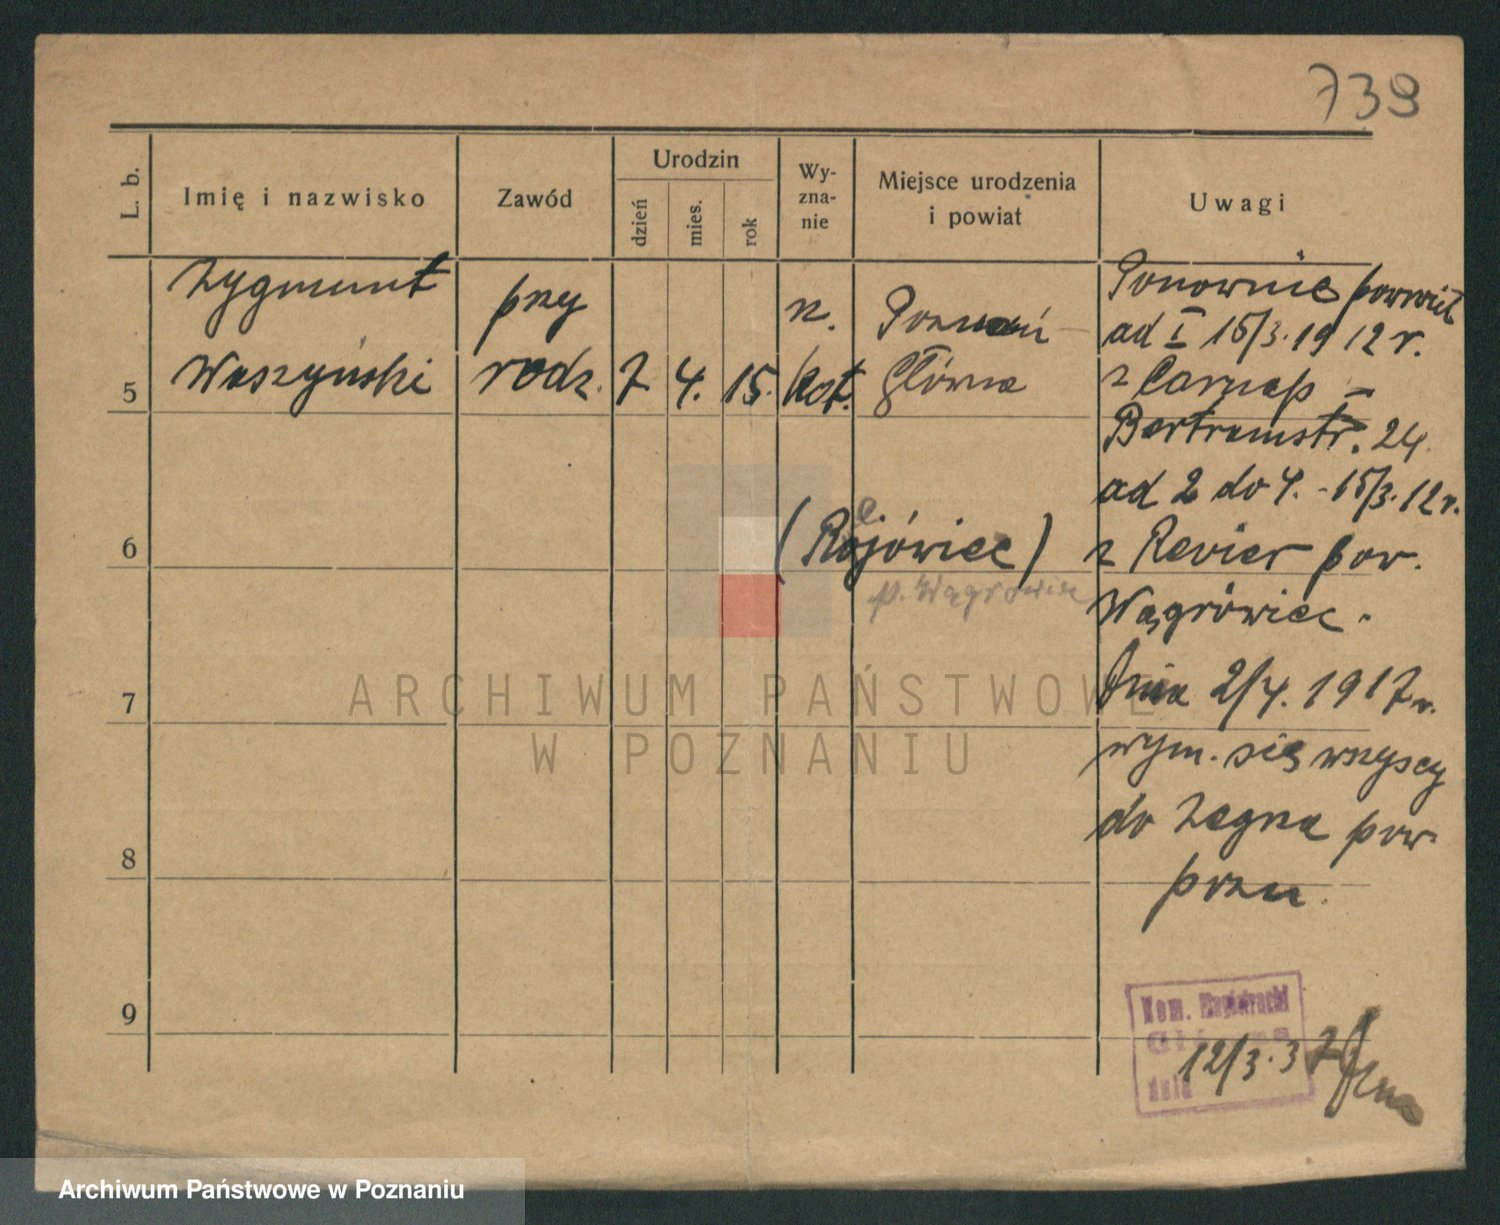 739
L. b.
Imię i nazwisko
Zawód
Urodzin
dzień
mies.
rok
Wy-
zna-
nie
Miejsce urodzenia
i powiat
Uwagi
Zygmunt
Waszyński
przy
rodz.
7 4. 15.
rz.
kat.
Poznań
Główna
5
6
7
8
9
(Rojówiec)
e.
p. Wągrowiec
Ponownie powrócił
ad I 15/3. 1912 r.
z Carnap
Bertramstr. 24.
ad 2 do 4. - 15/3. 12 r.
z Revier pow.
Wągrówiec.
Dnia 2/4. 1917 r.
wym. się wszyscy
do Zagna pow.
pozn.
Kom. Magistracki
Główna
dnia
12/3. 37
ARCHIWUM PAŃSTWOWE
W POZNANIU
Archiwum Państwowe w Poznaniu